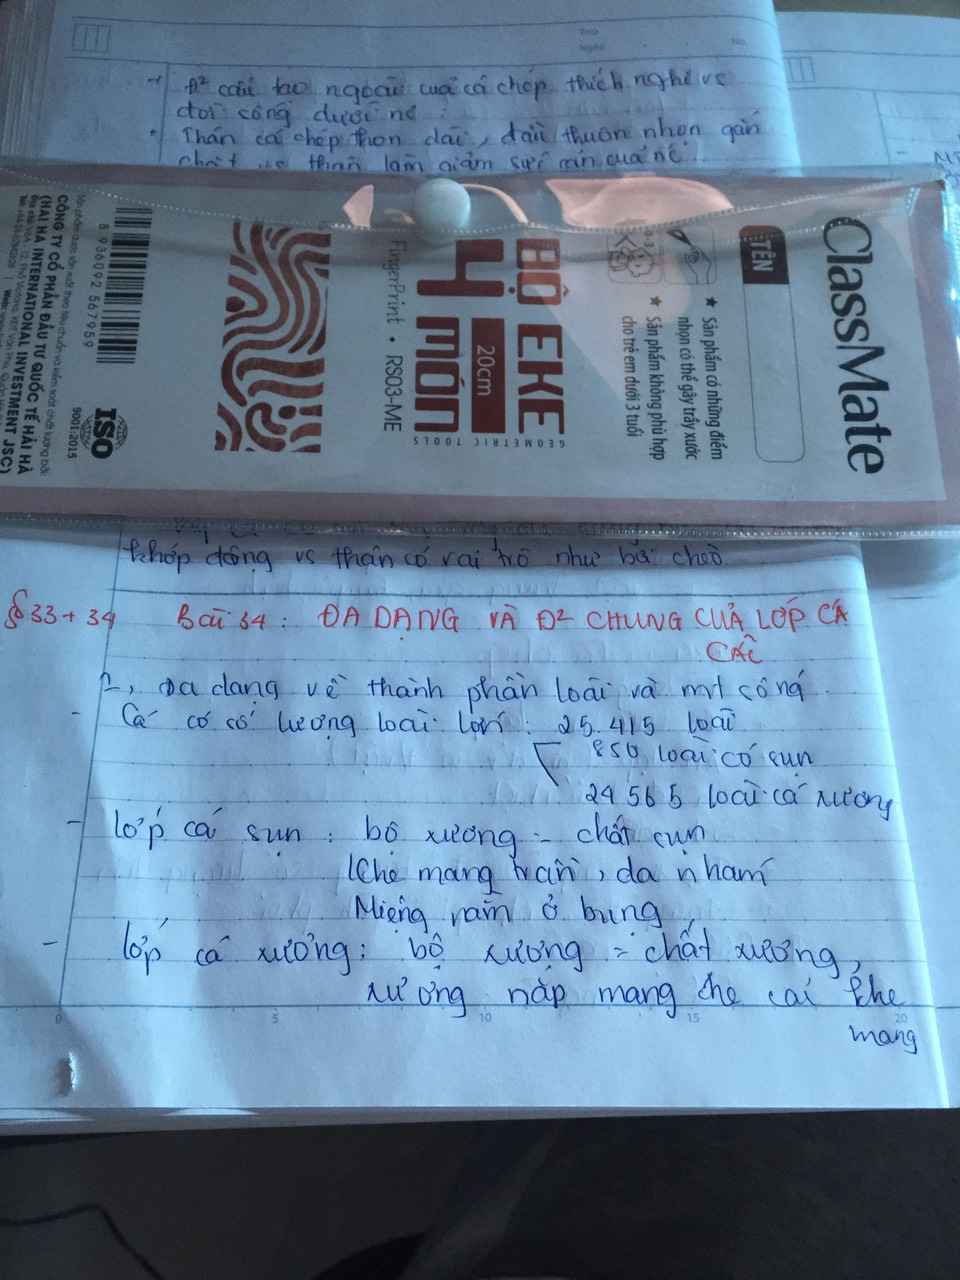 Thứ
Ngày No.
→ Đ² cấu tạo ngoài của cá chép thích nghi vs
đời sống dưới nc :
• Thân cá chép thon dài, đầu thuôn nhọn gắn
chặt vs thân làm giảm sức cản của nc
ClassMate
TÊN
★ Sản phẩm có những điểm
nhọn có thể gây trầy xước
★ Sản phẩm không phù hợp
cho trẻ em dưới 3 tuổi
BỘ EKE
4 MÓN
20cm
GEOMETRIC TOOLS
FingerPrint • RS03-ME
8 936092 567959
ISO
9001:2015
CÔNG TY CỔ PHẦN ĐẦU TƯ QUỐC TẾ HẢI HÀ
(HAI HA INTERNATIONAL INVESTMENT JSC)
khớp động vs thân có vai trò như bơi chèo.
§ 33 + 34 Bài 34 : ĐA DẠNG VÀ Đ² CHUNG CỦA LỚP CÁ
CÁC
1, Đa dạng về thành phần loài và mt sống
- Cá có số lượng loài lớn : 25.415 loài
850 loài có sụn
24 565 loài cá xương
- lớp cá sụn : bộ xương = chất sụn
Khe mang trần, da nhám
Miệng nằm ở bụng,
- lớp cá xương : bộ xương = chất xương,
xương nắp mang che cái khe
mang
0 5 10 15 20